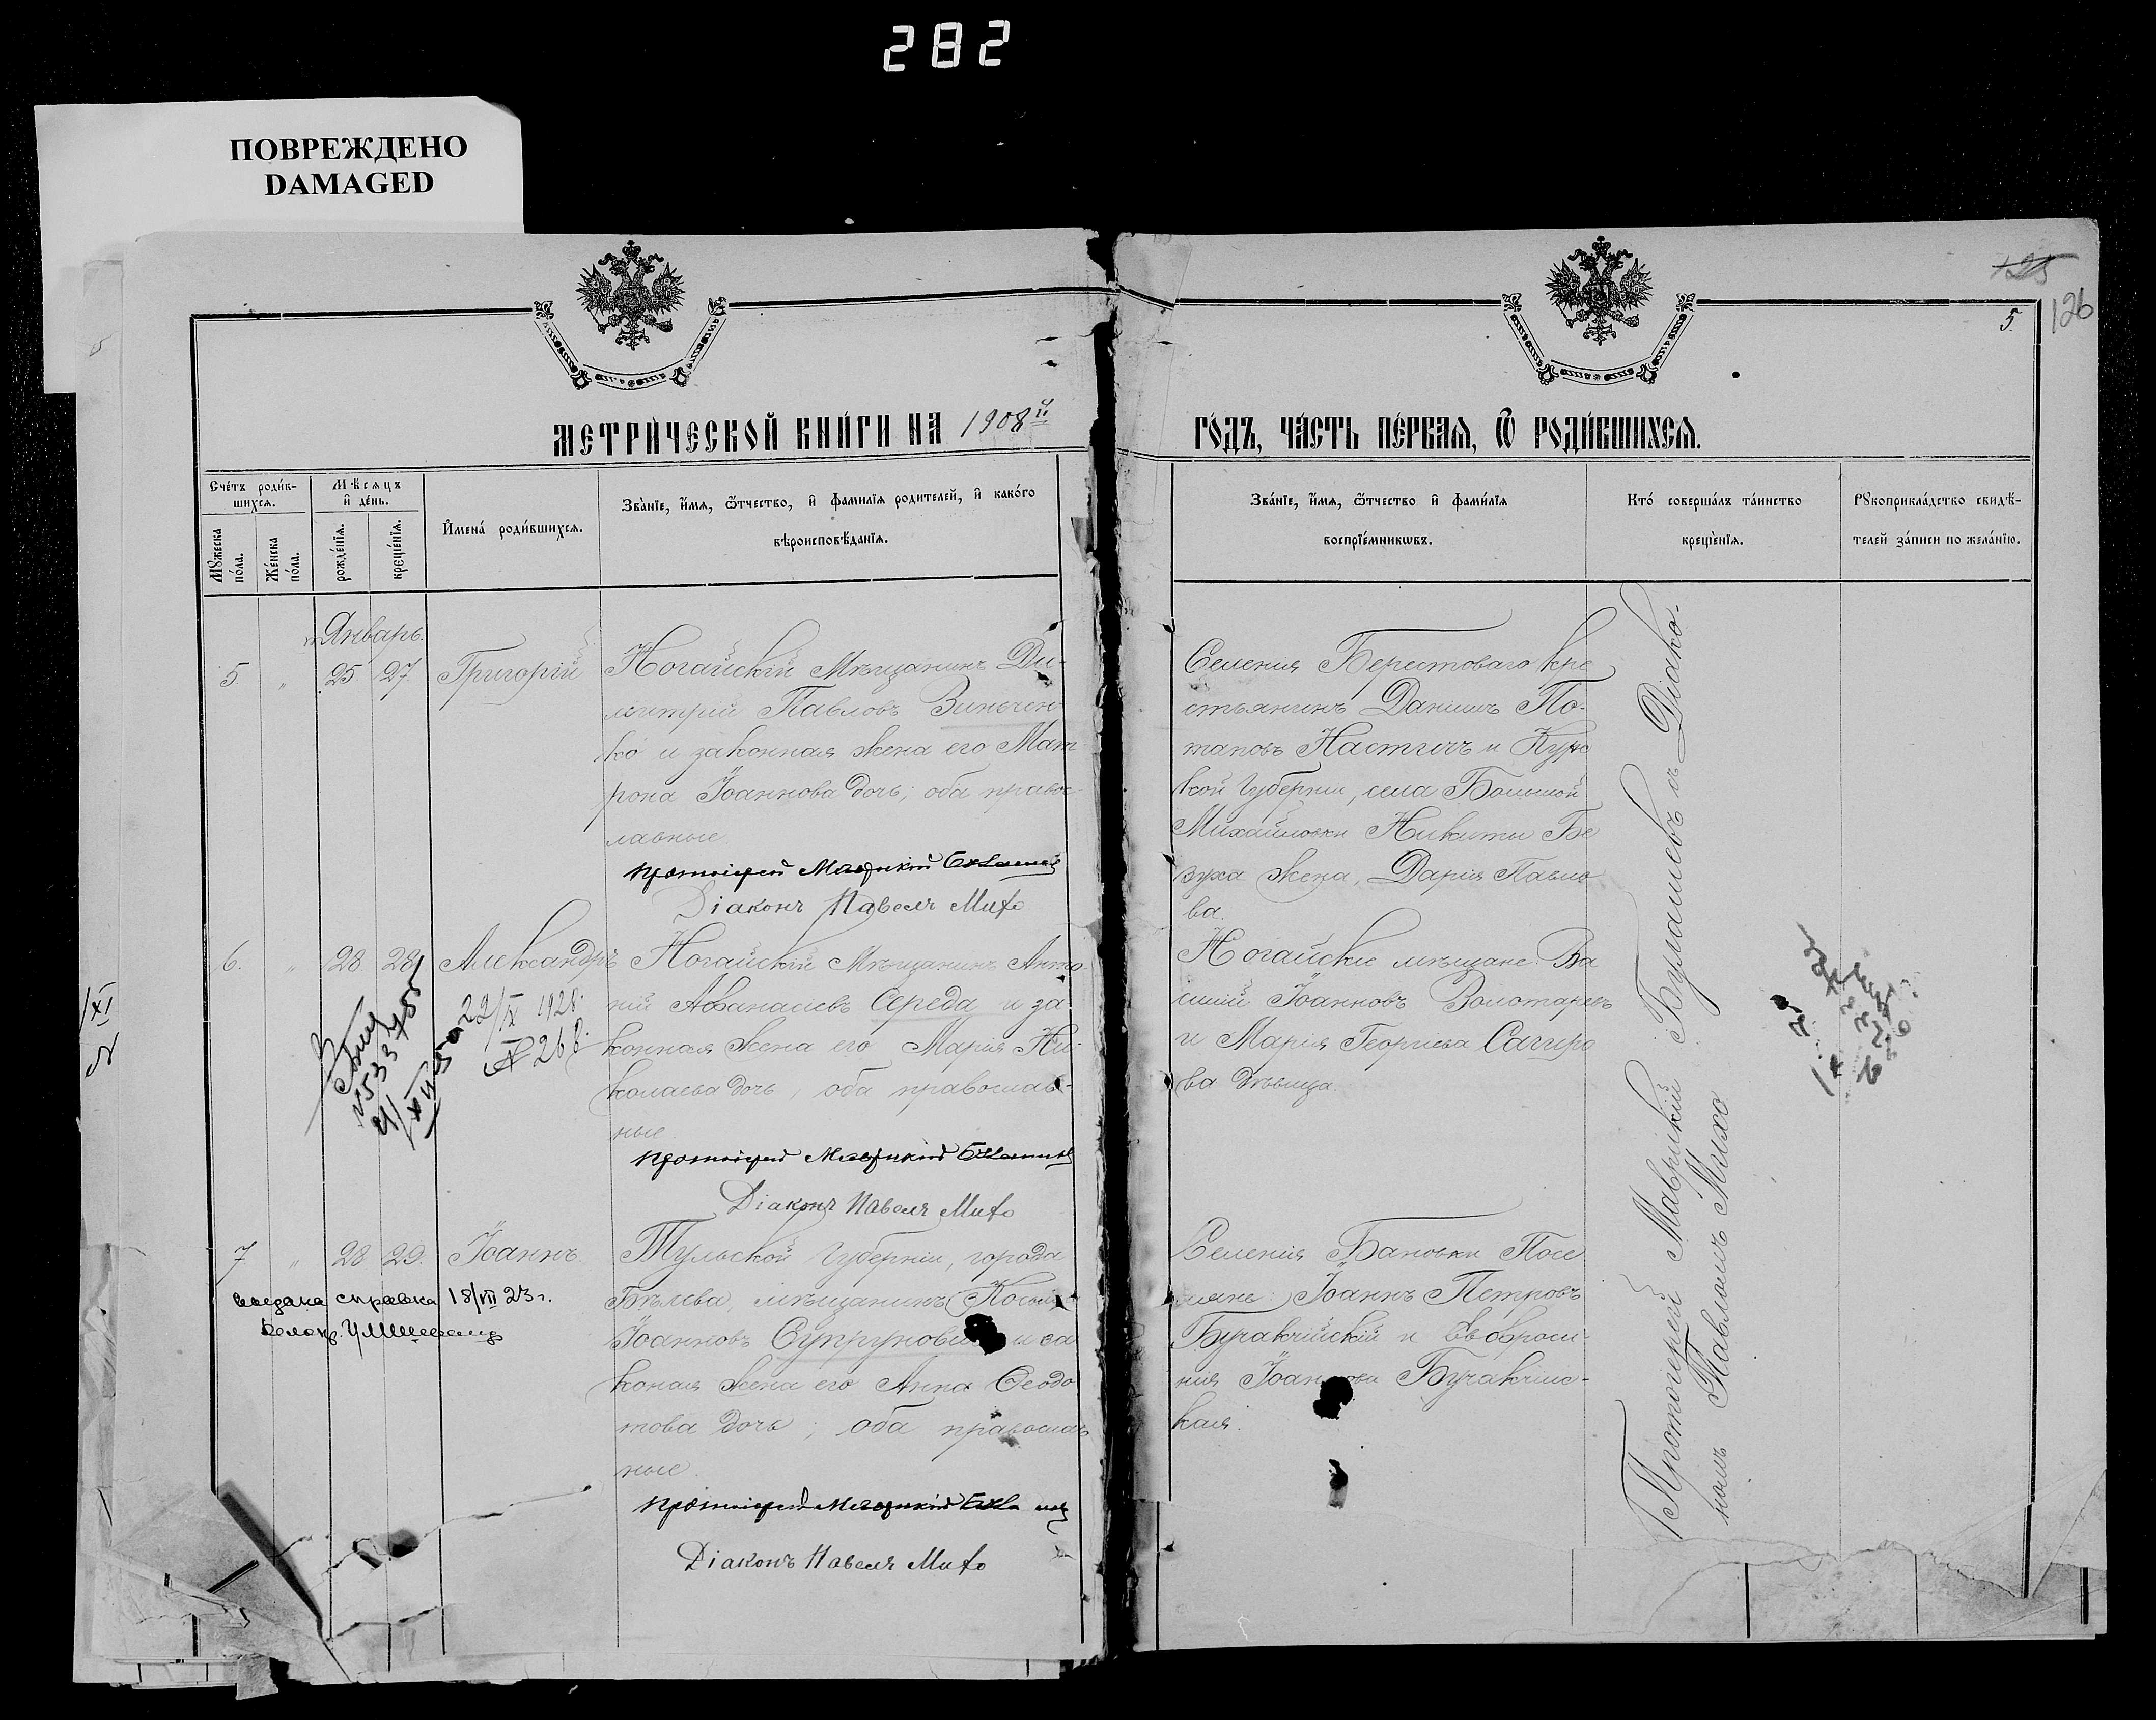 282
ПОВРЕЖДЕНО
DAMAGED
125
126
5.
МЕТРИ́ЧЕСКОЙ КНИ́ГИ НА 1908й
ГО́ДЪ, ЧА́СТЬ ПЕ́РВАЯ, Ѡ҃ РОДИ́ВШИХСЯ.
Сче́тъ роди́в-
шихся.
Мѣсяцъ
и҆ де́нь.
Мꙋжеска
по́ла.
Же́нска
по́ла.
рожде́нїя.
креще́нїя.
И҆мена́ роди́вшихся.
Зва́нїе, и҆́мя, ѻ҆́тчество, и҆ фами́лїя роди́телей, и҆ како́го
вѣроисповѣ́данїя.
Зва́нїе, и҆́мя, ѻ҆́тчество и҆ фами́лїя
воспрїе́мникѡвъ.
Кто́ соверша́лъ та́инство
креще́нїя.
Рꙋкоприкла́дство свидѣ́-
телей за́писи по жела́нїю.
Январь.
5 " 25 27 Григорій
Ногайскій Мѣщанинъ Ди-
митрій Павловъ Зинчен-
ко и законная жена его Мат
рона Іоаннова дочь; оба правос-
лавные.
Протоіерей Маврикій
Діаконъ Павелъ Михо
Селенія Берестоваго кре
стьянинъ Даніилъ По-
таповъ Настичъ и Курс
кой Губерніи, села Большой
Михайловки Никиты Бе
зуха жена, Дарія Павло
ва.
6. " 28 28 Александръ
Ногайскій Мѣщанинъ Анто-
ній Аѳанасіевъ Середа и за
конная жена его Марія Ни-
колаева дочь, оба православ-
ные.
Протоіерей Маврикій
Діаконъ Павелъ Михо
22/IX 1928.
№ 268.
Ногайскіе мѣщане: Ва
силій Іоанновъ Золотаревъ
и Марія Георгіева Сагиро
ва дѣвица.
7 " 28 29. Іоаннъ
выдана справка 18/VII 23 г.
Тульской Губерніи, города
Бѣлева, мѣщанинъ
Іоанновъ и за
конная жена его Анна Ѳеодо
това дочь; оба православ
ные.
Протоіерей Маврикій
Діаконъ Павелъ Михо
Селенія Бановки Посе
ляне: Іоаннъ Петровъ
Бучакчійскій и Евфроси-
нія Іоаннова Бучакчійс-
кая.
Протоіерей Маврикій Булашевъ съ Діако-
номъ Павломъ Михо.